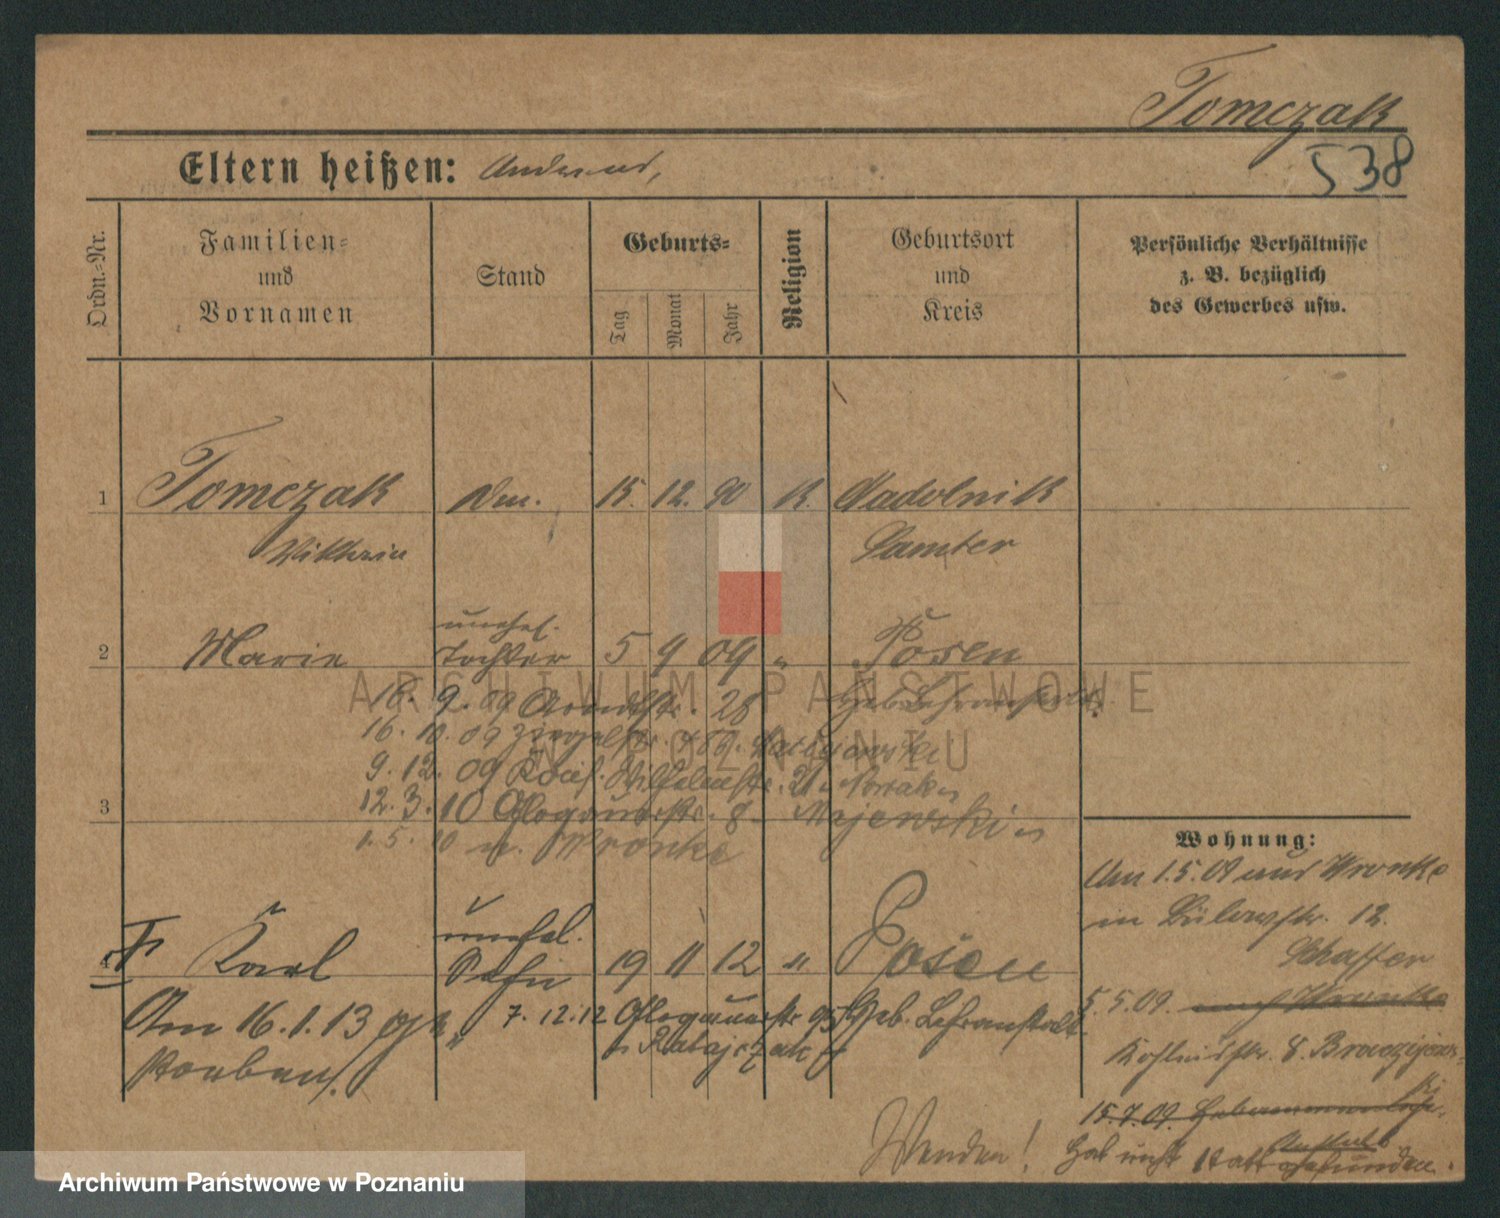 Tomczak
538
Eltern heißen: Andreas,
Ordn.-Nr.
Familien-
und
Vornamen
Stand
Geburts-
Tag
Monat
Jahr
Religion
Geburtsort
und
Kreis
Persönliche Verhältnisse
z. B. bezüglich
des Gewerbes usw.
1 Tomczak 15. 12. 90 K. Nadolnik
Viktoria Samter
unehel.
2 Marie Tochter 5 9 09 " Posen
18. 9. 09 28 Heb. Lehranstalt
16. 10. 09
9. 12. 09 Wilhelmstr. Nowak
3 12. 3. 10 Glogauerstr. 8. Majewski
1. 5. 10 n. Wronke
Wohnung:
Am 1.5.09 aus Wronke
in Bülowstr. 12.
Schaffer
4 Karl unehel. Sohn 19 11 12 " Posen
Am 16.1.13 ge-
storben.
7. 12. 12 Glogauerstr 95 Heb. Lehranstalt
b. Ratajczak
5.5.09. nach Wronke
8.
15.7.09.
Anstalt
Hat nicht stattgefunden.
Wenden!
ARCHIWUM PAŃSTWOWE
W POZNANIU
Archiwum Państwowe w Poznaniu